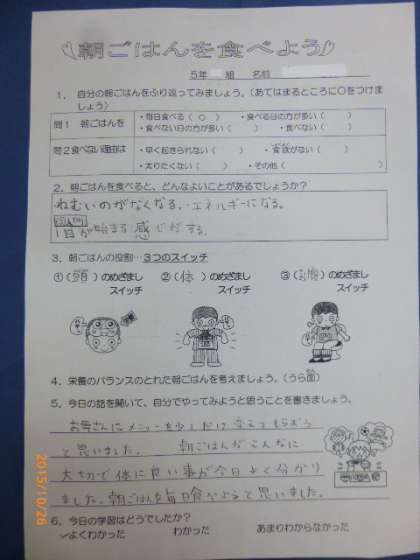 朝ごはんを食べよう
5年 組 名前
1．自分の朝ごはんをふり返ってみましょう。（あてはまるところに○をつけましょう）
問1 朝ごはんを
・毎日食べる（ ○ ） ・食べる日の方が多い（ ）
・食べない日の方が多い（ ） ・食べない（ ）
問2 食べない理由は
・早く起きられない（ ） ・食欲がない（ ）
・太りたくない（ ） ・その他（ ）
2．朝ごはんを食べると、どんなよいことがあるでしょうか？
ねむいのがなくなる。・エネルギーになる。
1日が始まる感じがする。
3．朝ごはんの役割…3つのスイッチ
①（頭）のめざましスイッチ
②（体）のめざましスイッチ
③（お腹）のめざましスイッチ
4．栄養のバランスのとれた朝ごはんを考えましょう。（うら面）
5．今日の話を聞いて、自分でやってみようと思うことを書きましょう。
お母さんにメニューを少しだけ変えてもらおう
と思いました。 朝ごはんがこんなに
大切で体に良い事が今日よく分かり
ました。朝ごはんを毎日食べようと思いました。
6．今日の学習はどうでしたか？
✓よくわかった わかった あまりわからなかった
2015/10/26